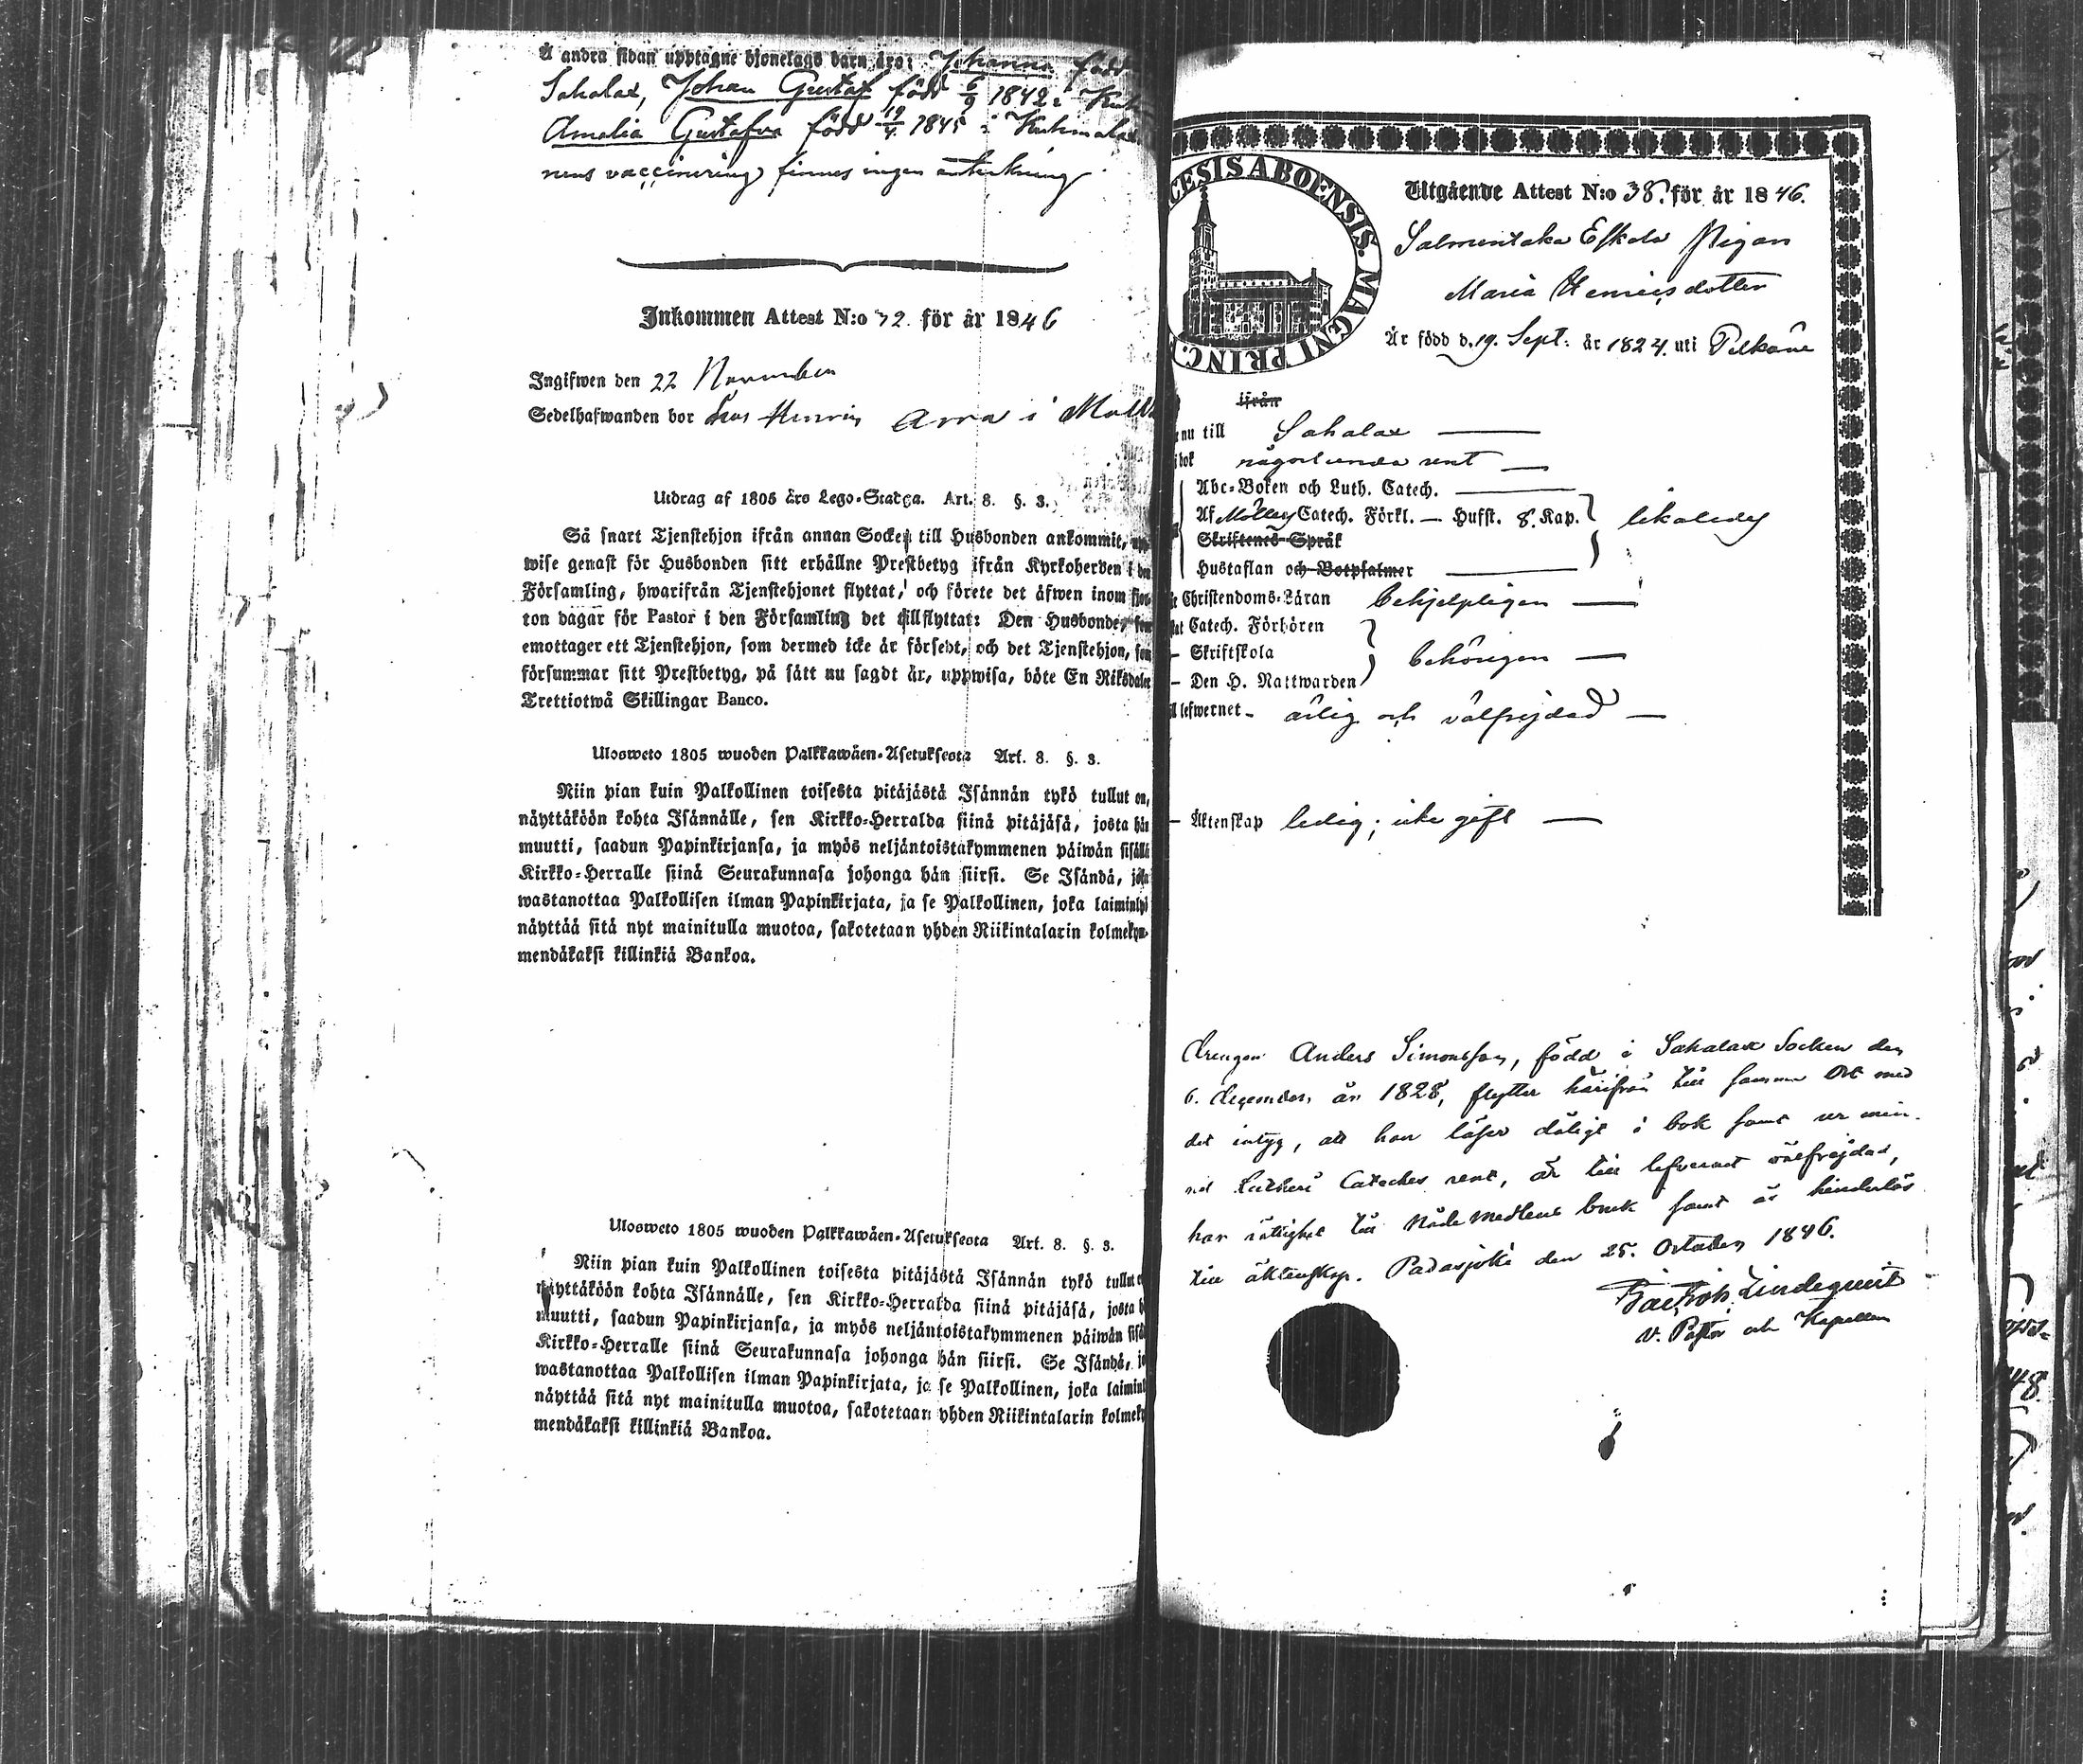 Å andra sidan upptagne hjonelags barn äro: Johanna född
Sahalax, Johan Gustaf född 6/9 1842 i Kuh
Amalia Gustafva född 19/4 1845 i Kuhmalax
nens vaccinering finnes ingen anteckning
Inkommen Attest N:o 72. för år 1846
Ingifwen den 22 November
Sedelhafwanden bor hos Henric Arra i
Utdrag af 1805 års Lego-Stadga. Art. 8. §. 3.
Så snart Tjenstehjon ifrån annan Socken till Husbonden ankommit,
wise genast för Husbonden sitt erhållne Prestbetyg ifrån Kyrkoherden i den
Församling, hwarifrån Tjenstehjonet flyttat, och förete det äfwen inom fjor-
ton dagar för Pastor i den Församling det tillflyttat: Den Husbonde, som
emottager ett Tjenstehjon, som dermed icke är försedt, och det Tjenstehjon, som
försummar sitt Prestbetyg, på sätt nu sagdt är, uppwisa, böte En Riksdaler
Trettiotwå Skillingar Banco.
Ulosweto 1805 wuoden Palkkawäen-Asetuksesta Art. 8. §. 3.
Niin pian kuin Palkollinen toisesta pitäjästä Isännän tykö tullut on,
näyttäköön kohta Isännälle, sen Kirkko-Herralda siinä pitäjäsä, josta hän
muutti, saadun Papinkirjansa, ja myös neljäntoistakymmenen päiwän sisällä
Kirkko-Herralle siinä Seurakunnasa johonga hän siirsi. Se Isändä, joka
wastanottaa Palkollisen ilman Papinkirjata, ja se Palkollinen, joka laiminlyö
näyttää sitä nyt mainitulla muotoa, sakotetaan yhden Riikintalarin kolmekym-
mendäkaksi killinkiä Bankoa.
Ulosweto 1805 wuoden Palkkawäen-Asetuksesta Art. 8. §. 3.
Niin pian kuin Palkollinen toisesta pitäjästä Isännän tykö tullut
näyttäköön kohta Isännälle, sen Kirkko-Herralda siinä pitäjäsä, josta
muutti, saadun Papinkirjansa, ja myös neljäntoistakymmenen päiwän
Kirkko-Herralle siinä Seurakunnasa johonga hän siirsi. Se Isändä,
wastanottaa Palkollisen ilman Papinkirjata, ja se Palkollinen, joka
näyttää sitä nyt mainitulla muotoa, sakotetaan yhden Riikintalarin
mendäkaksi killinkiä Bankoa.
CESIS ABOENSIS. MAGNI PRINC.
Utgående Attest N:o 38. för år 1846.
Salmentaka Eskola Pigan
Maria Henricsdotter
Är född d. 19. Sept. år 1824. uti Pelkäne
ifrån
nu till Sahalax
bok någorlunda rent
Abc-Boken och Luth. Catech.
Af Möllers Catech. Förkl. — Husst. 8. Kap. likaledes
Skriftenes Språk
Hustaflan och Botpsalmer
Christendoms-Läran behjelpligen
Catech. Förhören
Skriftskola behörigen
Den H. Nattwarden
lefwernet ärlig och välfrejdad
Äktenskap ledig; icke gift
Drengen Anders Simonsson, född i Sahalax Socken den
6. december år 1828, flytter härifrån till samma Ort med
det intyg, att han läser dåligt i bok samt ur min-
net Lutheri Cateches rent, är till lefvernet välfrejdad,
har rättighet till Nådemedlens bruk samt är hinderlös
till äktenskap. Padasjoki den 25. October 1846.
Lindequist
V. Pastor och Kapellan